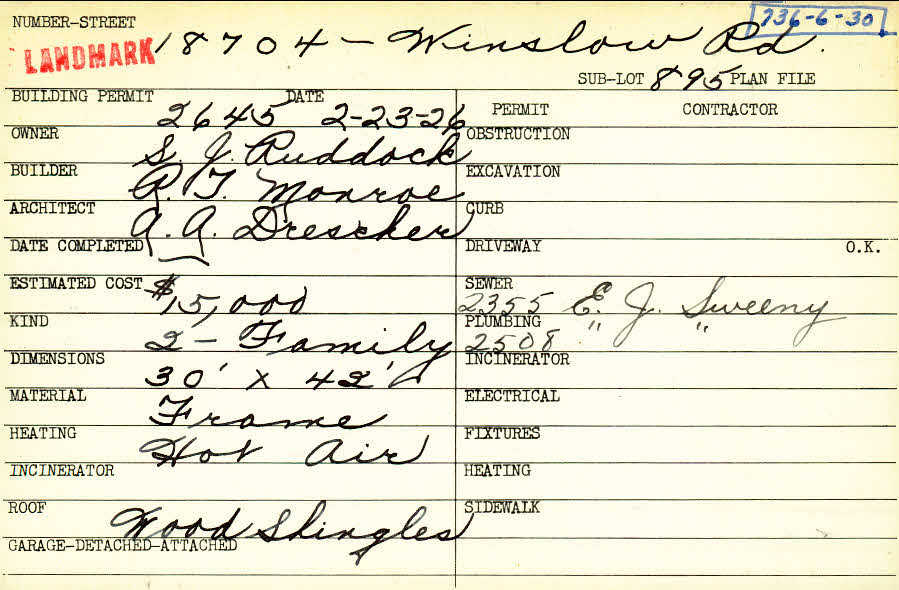 NUMBER-STREET 736-6-30
LANDMARK 18704 - Winslow Rd.
SUB-LOT 895 PLAN FILE
BUILDING PERMIT 2645 DATE 2-23-26 PERMIT CONTRACTOR
OWNER S. J. Ruddock OBSTRUCTION
BUILDER R. T. Monroe EXCAVATION
ARCHITECT A. A. Drescher CURB
DATE COMPLETED DRIVEWAY O.K.
ESTIMATED COST $15,000 SEWER 2355 E. J. Sweeny
KIND 2-Family PLUMBING 2508 " "
DIMENSIONS 30' x 42' INCINERATOR
MATERIAL Frame ELECTRICAL
HEATING Hot Air FIXTURES
INCINERATOR HEATING
ROOF Wood Shingles SIDEWALK
GARAGE-DETACHED-ATTACHED